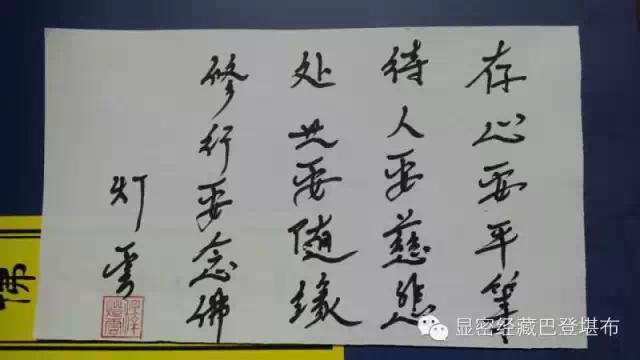 存心要平等
待人要慈悲
处世要随缘
修行要念佛
灯云
佛
显密经藏巴登堪布